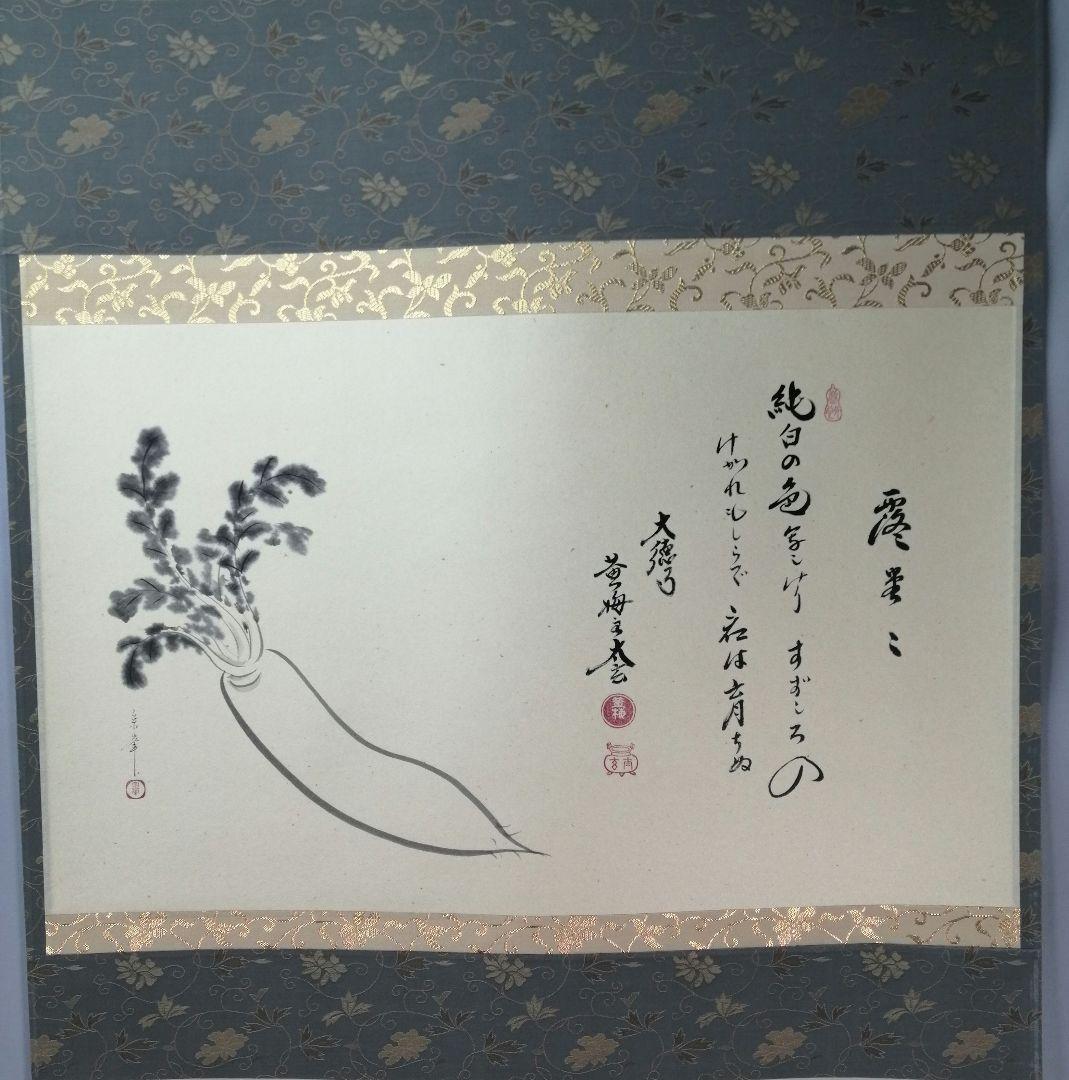 露堂〻
純白の色 けり すずしろの
けがれもしらで は育ちぬ
大徳寺
黄梅主太玄